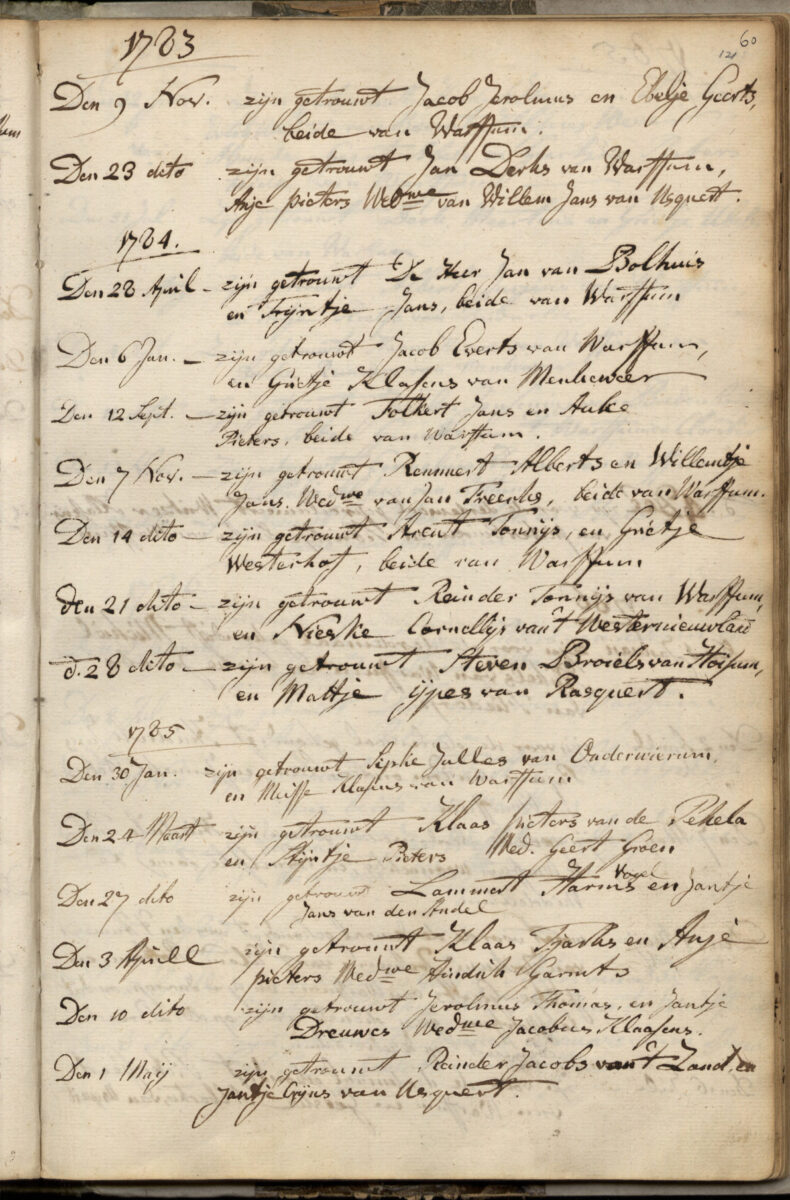 60
121
1783
Den 9 Nov. zijn getrouwt Jacob Jerolmus en Ebelje Geerts,
beide van Warffum.
Den 23 dito zijn getrouwt Jan Derks van Warffum,
Anje pieters Wedwe van Willem Jans van Usquert.
1784.
Den 28 April - zijn getrouwt De Heer Jan van Bolhuis
en Trijntje Jans, beide van Warffum
Den 6 Jan. - zijn getrouwt Jacob Everts van Warffum,
en Grietje Klasens van Menkeweer
Den 12 Sept. - zijn getrouwt Folkert Jans en Auke
Pieters, beide van Warffum.
Den 7 Nov. - zijn getrouwt Remmert Alberts en Willemtje
Jans. Wedwe van Jan Freerks, beide van Warffum.
Den 14 dito - zijn getrouwt Arent Tonnijs, en Grietje
Westerhof, beide van Warffum
den 21 dito - zijn getrouwt Reinder Tonnijs van Warffum,
en Nieske Cornellijs van't Westernieuwland
d. 28 dito - zijn getrouwt Steven Broiels van
en Martje ijpes van Rasquert.
1785
Den 30 Jan. zijn getrouwt Sipke Julles van Onderwierum,
en Klasens van Warffum
Den 24 Maart zijn getrouwt Klaas pieters van de Pekela
en Stijntje Pieters Wed. Geert Groen
Den 27 dito zijn getrouwt Lammert Harms Vogel en Jantje
Jans van den Andel
Den 3 Aprill zijn getrouwt Klaas Tjarks en Anje
pieters Wedwe Hindrik Garmts
Den 10 dito zijn getrouwt Jerolmus Thomas, en Jantje
Dreuwes Wedwe Jacobus Klaasens.
Den 1 Maij zijn getrouwt Reinder Jacobs van't Zand, en
Jantje van Usquert.